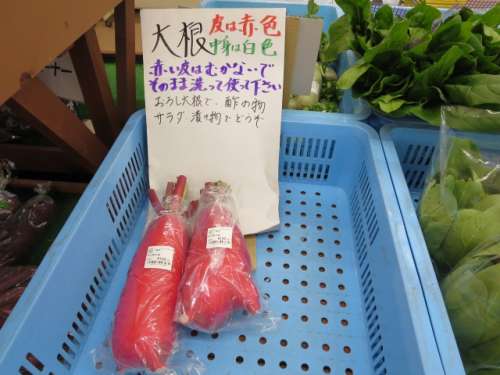 大根 皮は赤色
中身は白色
赤い皮はむかないで
そのまま洗って使って下さい
おろし大根で、酢の物
サラダ 漬け物でどうぞ